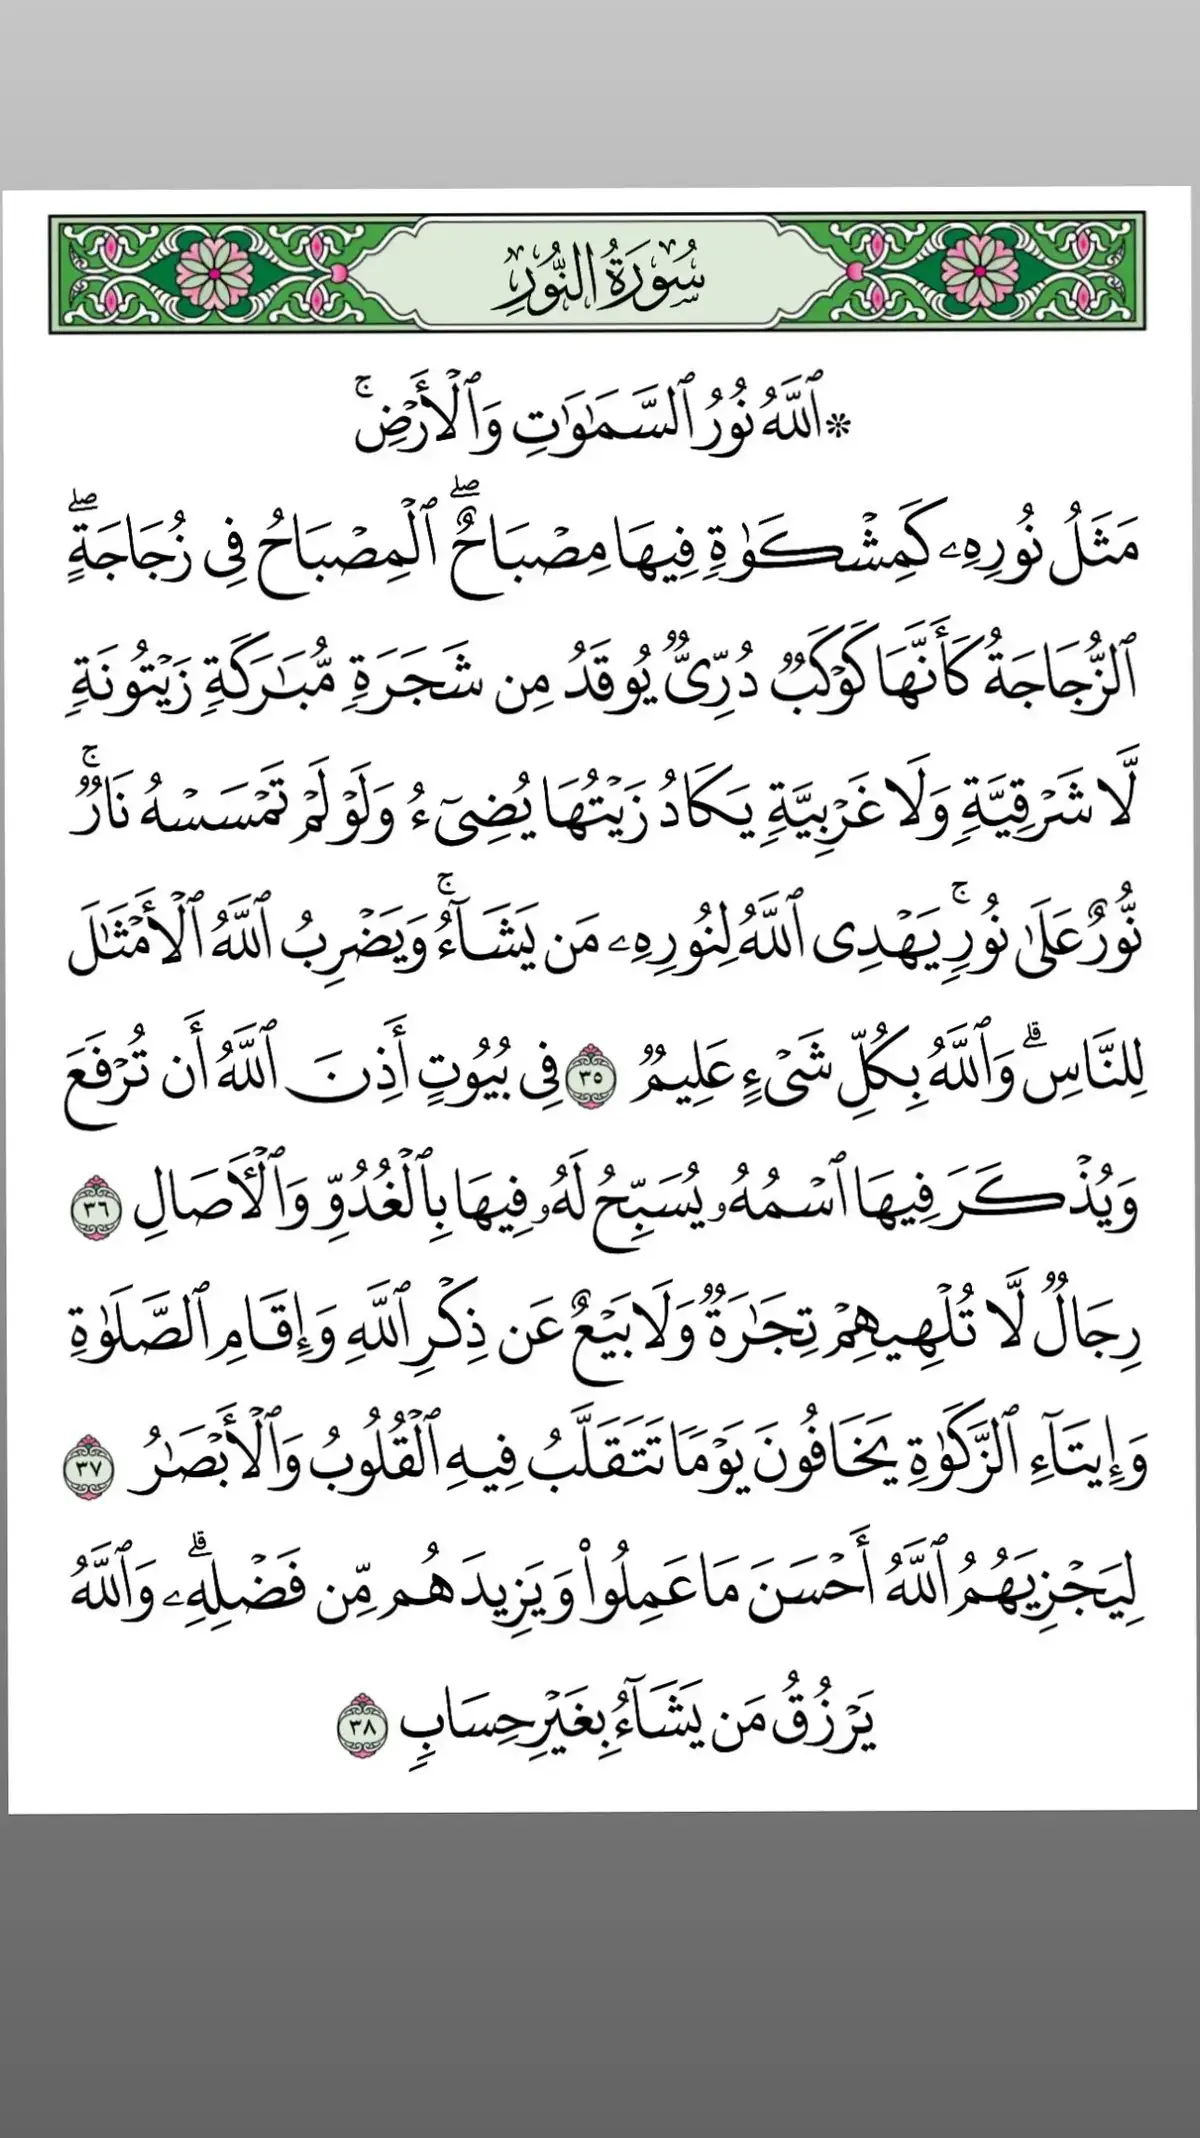 سُورَةُ النُّورِ
۞ ٱللَّهُ نُورُ ٱلسَّمَٰوَٰتِ وَٱلْأَرْضِۚ
مَثَلُ نُورِهِۦ كَمِشْكَوٰةٍ فِيهَا مِصْبَاحٌۖ ٱلْمِصْبَاحُ فِى زُجَاجَةٍۖ
ٱلزُّجَاجَةُ كَأَنَّهَا كَوْكَبٌ دُرِّىٌّ يُوقَدُ مِن شَجَرَةٍ مُّبَٰرَكَةٍ زَيْتُونَةٍ
لَّا شَرْقِيَّةٍ وَلَا غَرْبِيَّةٍ يَكَادُ زَيْتُهَا يُضِىٓءُ وَلَوْ لَمْ تَمْسَسْهُ نَارٌۚ
نُّورٌ عَلَىٰ نُورٍۚ يَهْدِى ٱللَّهُ لِنُورِهِۦ مَن يَشَآءُۚ وَيَضْرِبُ ٱللَّهُ ٱلْأَمْثَٰلَ
لِلنَّاسِۗ وَٱللَّهُ بِكُلِّ شَىْءٍ عَلِيمٌ ٣٥ فِى بُيُوتٍ أَذِنَ ٱللَّهُ أَن تُرْفَعَ
وَيُذْكَرَ فِيهَا ٱسْمُهُۥ يُسَبِّحُ لَهُۥ فِيهَا بِٱلْغُدُوِّ وَٱلْءَاصَالِ ٣٦
رِجَالٌ لَّا تُلْهِيهِمْ تِجَٰرَةٌ وَلَا بَيْعٌ عَن ذِكْرِ ٱللَّهِ وَإِقَامِ ٱلصَّلَوٰةِ
وَإِيتَآءِ ٱلزَّكَوٰةِ يَخَافُونَ يَوْمًا تَتَقَلَّبُ فِيهِ ٱلْقُلُوبُ وَٱلْأَبْصَٰرُ ٣٧
لِيَجْزِيَهُمُ ٱللَّهُ أَحْسَنَ مَا عَمِلُوا۟ وَيَزِيدَهُم مِّن فَضْلِهِۦۗ وَٱللَّهُ
يَرْزُقُ مَن يَشَآءُ بِغَيْرِ حِسَابٍ ٣٨